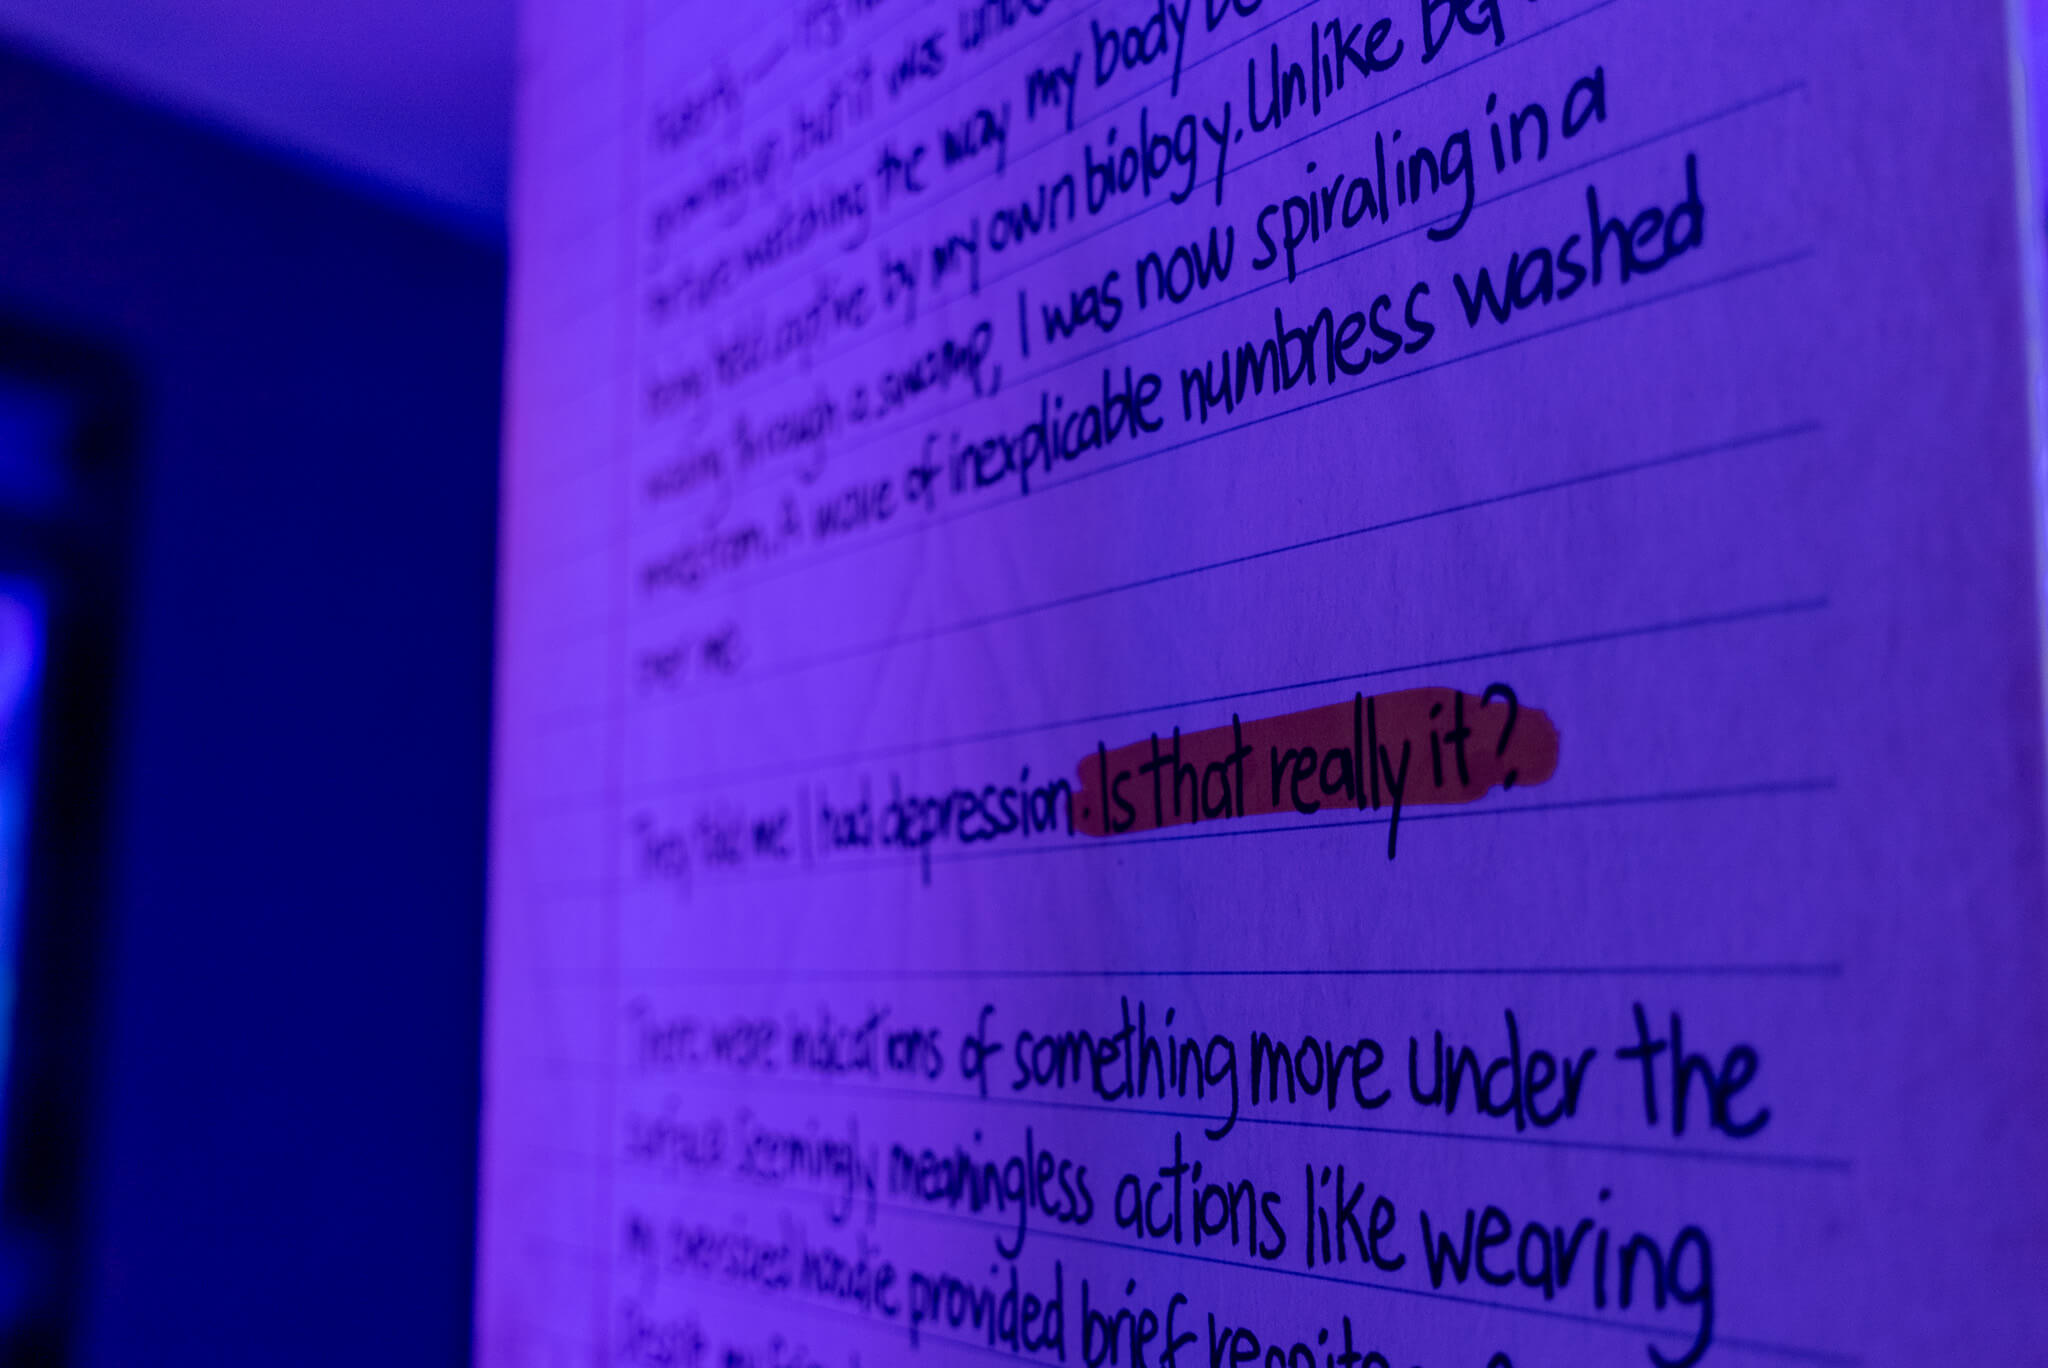 Puberty
growing up, but it was
torture watching the way my body
being held captive by my own biology. Unlike
wading through a swamp, I was now spiraling in a
maelstrom. A wave of inexplicable numbness washed
over me.
They told me I had depression. Is that really it?
There were indications of something more under the
surface. Seemingly meaningless actions like wearing
my oversized hoodie provided brief respite
Despite my